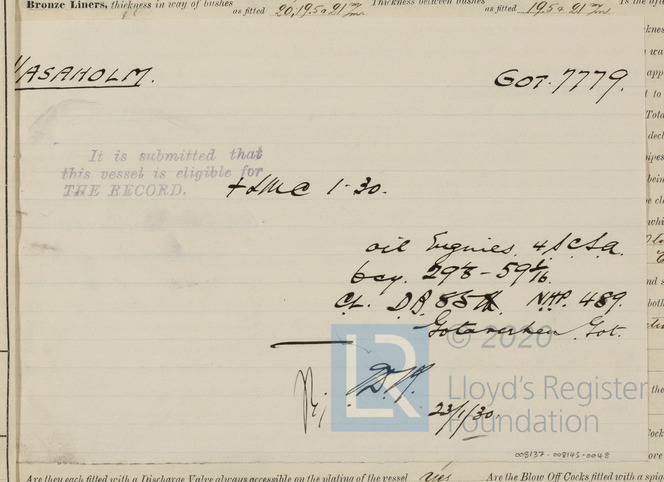 Bronze Liners, thickness in way of bushes as fitted 20,19.5 & 21 m/m Thickness between bushes as fitted 19.5 & 21 m/m
VASAHOLM. GOT. 7779.
It is submitted that
this vessel is eligible for
THE RECORD. + LMC 1-30.
oil Engines, 4 S.C.S.A.
6cy. 29⅛ - 59 1/16
CL. DB 85 NHP. 489.
Gotaverken Got.
© 2020
LR
Lloyd's Register
Foundation
23/1/30.
008137-008145-0048
Are they each fitted with a Discharge Valve always accessible on the plating of the vessel Yes Are the Blow Off Cocks fitted with a spig